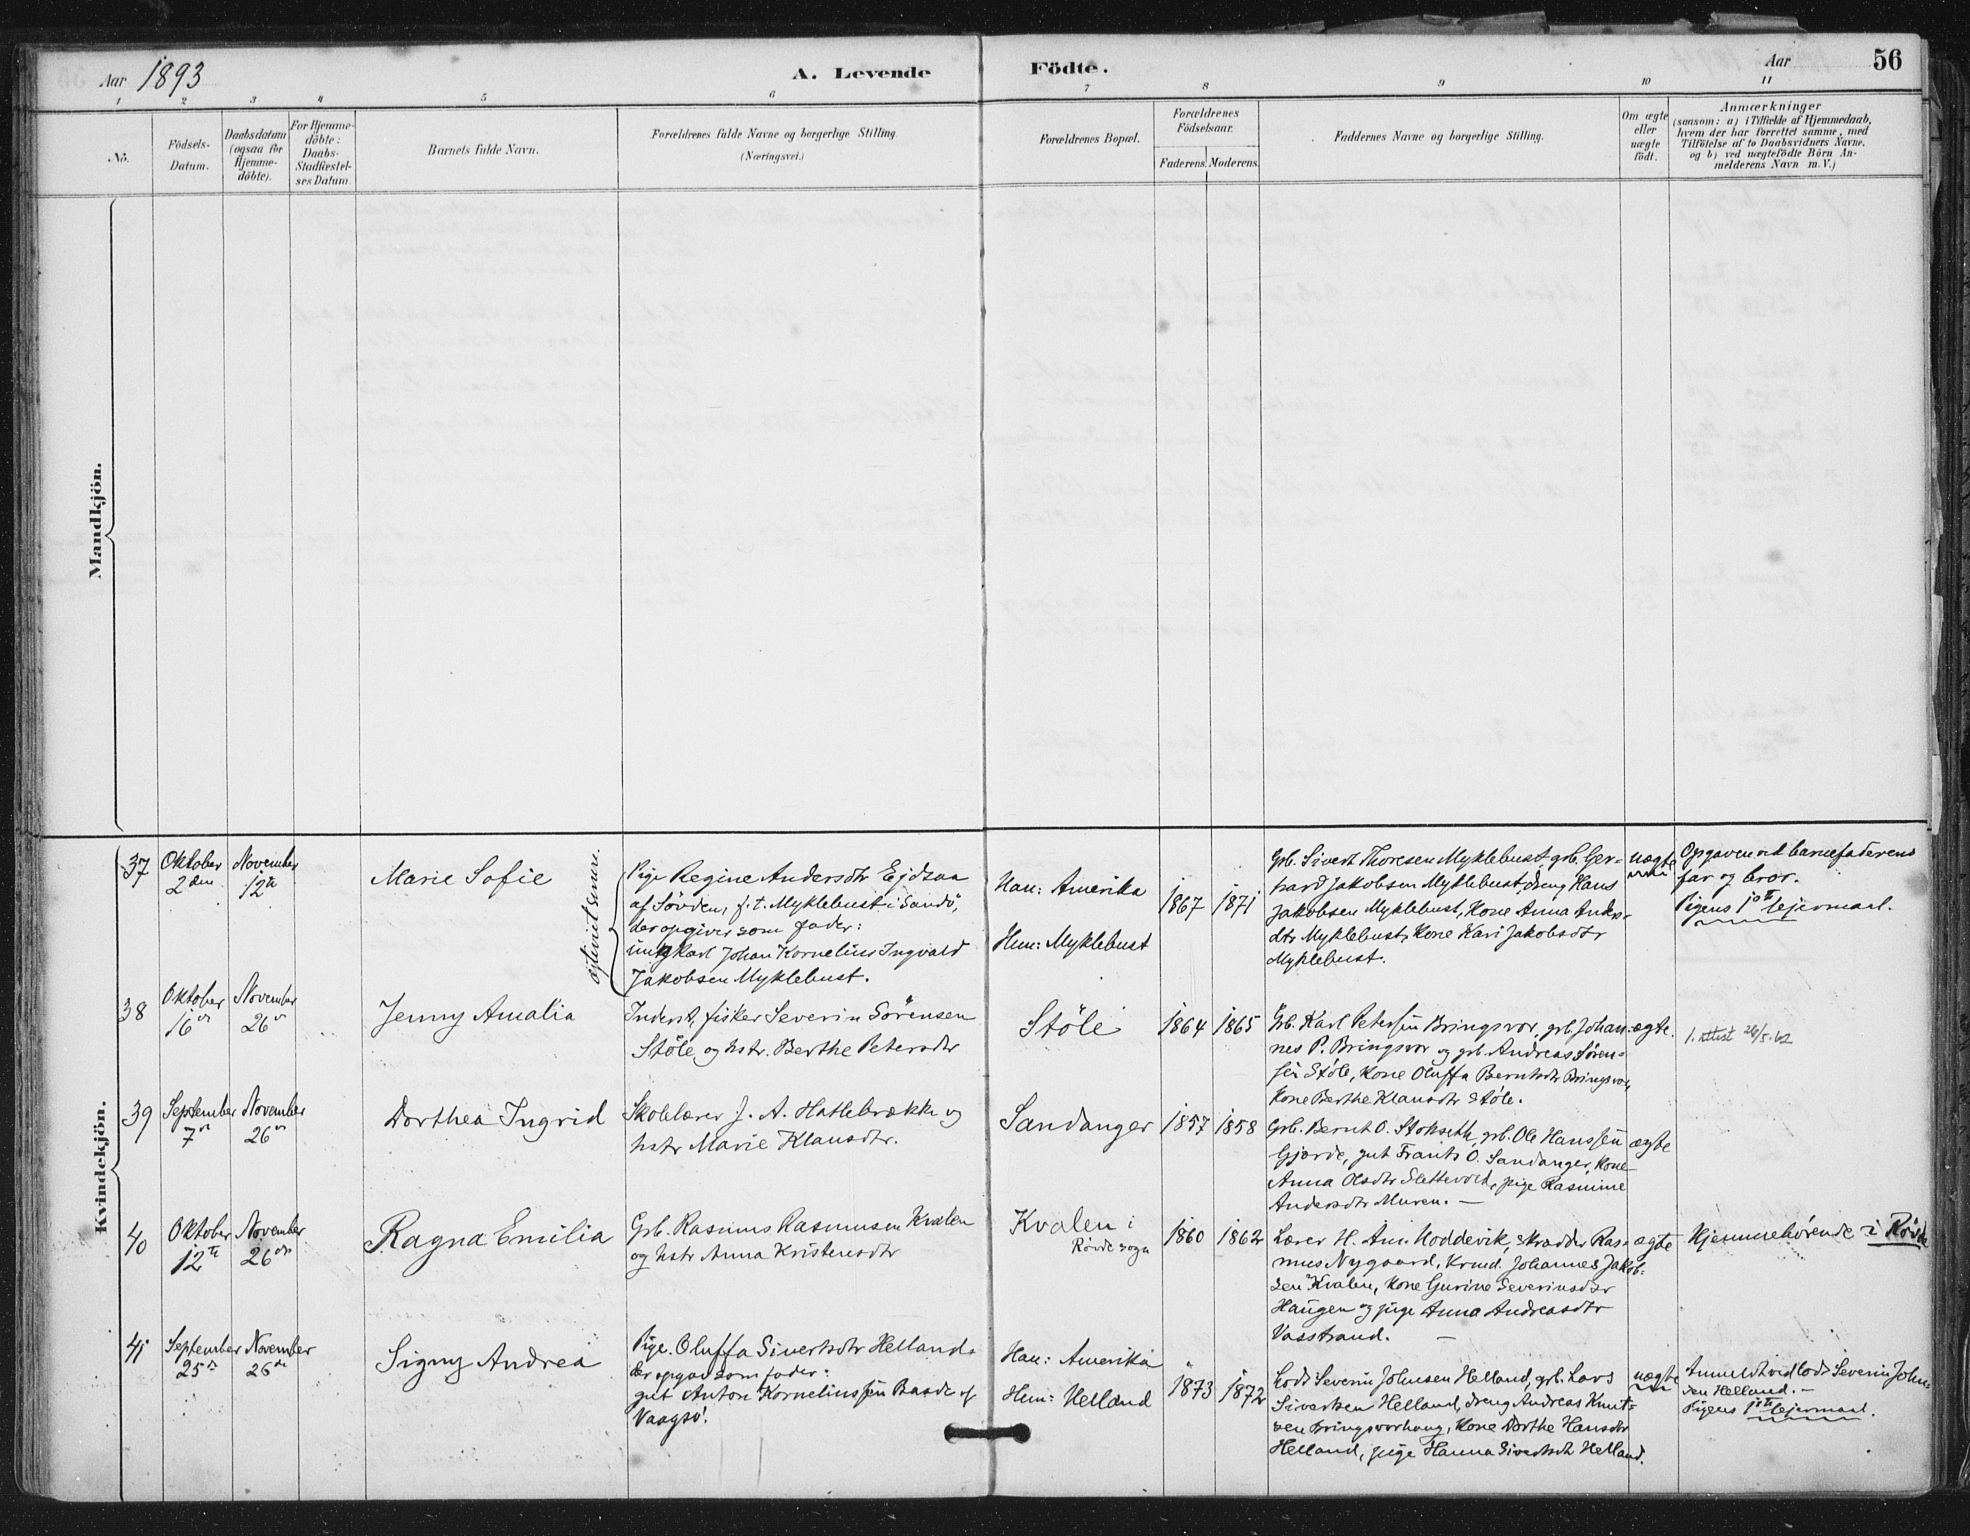 Aar 1893
A. Levende
Födte.
Aar
56
1 2 3 4 5 6 7 8 9 10 11
No.
Födsels-
Datum.
Daabsdatum
(ogsaa for
Hjemme-
döbte).
For Hjemme-
döbte:
Daabs-
Stadfæstel-
ses Datum
Barnets fulde Navn.
Forældrenes fulde Navne og borgerlige Stilling.
(Næringsvei.)
Forældrenes Bopæl.
Forældrenes
Födselsaar.
Faderens. Moderens.
Faddernes Navne og borgerlige Stilling.
Om ægte
eller
uægte
födt.
Anmærkninger
(saasom: a) i Tilfælde af Hjemmedaab,
hvem der har forrettet samme, med
Tilföielse af to Daabsvidners Navne,
og b) ved uægtefödte Börn An-
melderens Navn m. V.)
Mandkjön.
Kvindekjön.
37
Oktober
2den
November
12te
Marie Sofie
Pige Regine Andersdtr Ejdsaa
af Søvden, f. t. Myklebust i Sandö,
der opgiver som fader:
ungkarl Johan Kornelius Ingvald
Jakobsen Myklebust.
Han: Amerika
Hun: Myklebust
1867
1871
Grb. Sivert Thoresen Myklebust, grb. Ger-
hard Jakobsen Myklebust, dreng Hans
Jakobsen Myklebust, Kone Anna Anders-
dtr Myklebust, Kone Kari Jakobsdtr
Myklebust.
uægte
Opgaven ved barnefaderens
far og bror.
Pigens 1ste lejermaal.
38
Oktober
16de
November
26de
Jenny Amalia
Inderst, fisker Severin Sörensen
Stöle og hstr. Berthe Petersdtr
Stöle
1864
1865
Grb. Karl Petersen Bringsvor, grb. Johan-
nes P. Bringsvor og grb. Andreas Sören-
sen Stöle, Kone Oluffa Berntsdtr Bringsvor,
Kone Berthe Klausdtr Stöle.
ægte.
1. attest 24/5-62
39
September
7de
November
26de
Dorthea Ingrid
Skolelærer J. A. Hatlebrække og
hstr Marie Klausdtr.
Sandanger
1857
1858
Grb. Bernt O. Stokseth, grb. Ole Hanssen
Gjærde, gut Frants O. Sandanger, Kone
Anna Olsdtr Slettevold, pige Rasmine
Andersdtr Muren. —
ægte
40
Oktober
12te
November
26de
Ragna Emilia
Grb. Rasmus Rasmusen Kvalen
og hstr Anna Kristensdtr
Kvalen i
Røvde sogn
1860
1862
Lærer H. Am. Hoddevik, skrædder Ras-
mus Nygaard, Krmd. Johannes Jakob-
sen Kvalen, Kone Gurine Severinsdtr
Haugen og pige Anna Andreasdtr
Vasstrand. —
ægte
Hjemmehörende i Røvde
41
September
25de
November
26de
Signy Andrea
Pige Oluffa Sivertsdtr Helland.
Der opgav som fader:
gut Anton Kornelinssen Baade af
Vaagsö.
Han: Amerika
Hun: Helland
1873
1872
Lods Severin Johnsen Helland, grb. Lars
Sivertsen Helland, dreng Andreas Knut-
sen Bringsvorhaug, Kone Dorthe Hansdtr
Helland, pige Hanna Sivertsdtr Helland.
uægte
Anmeldt ved lods Severin John-
sen Helland. —
Pigens 1ste lejermaal.